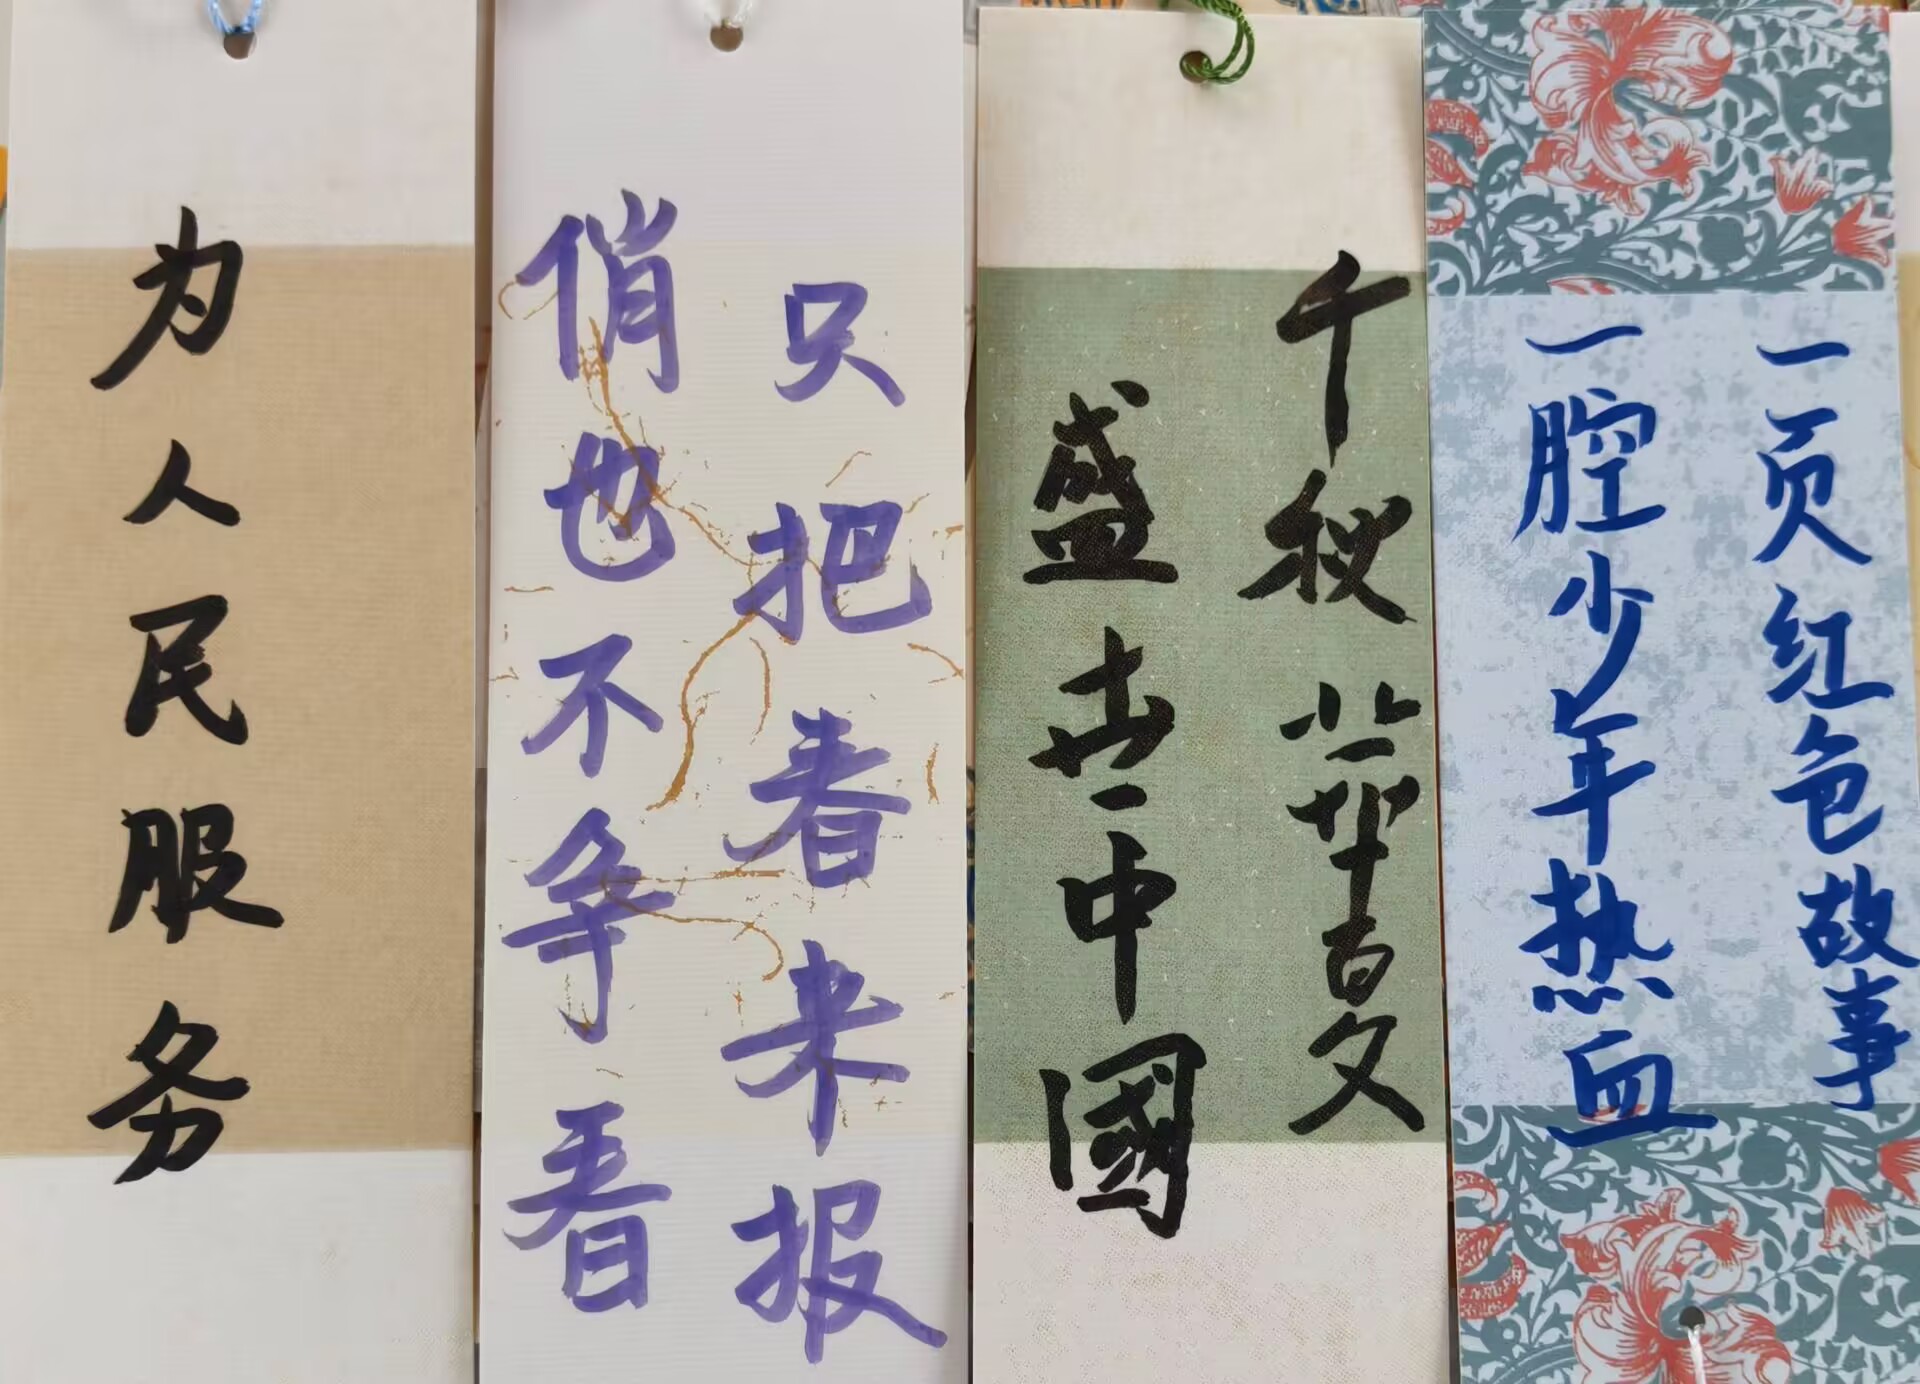 为人民服务
俏也不争春
只把春来报
千秋華夏
盛世中國
一页红色故事
一腔少年热血